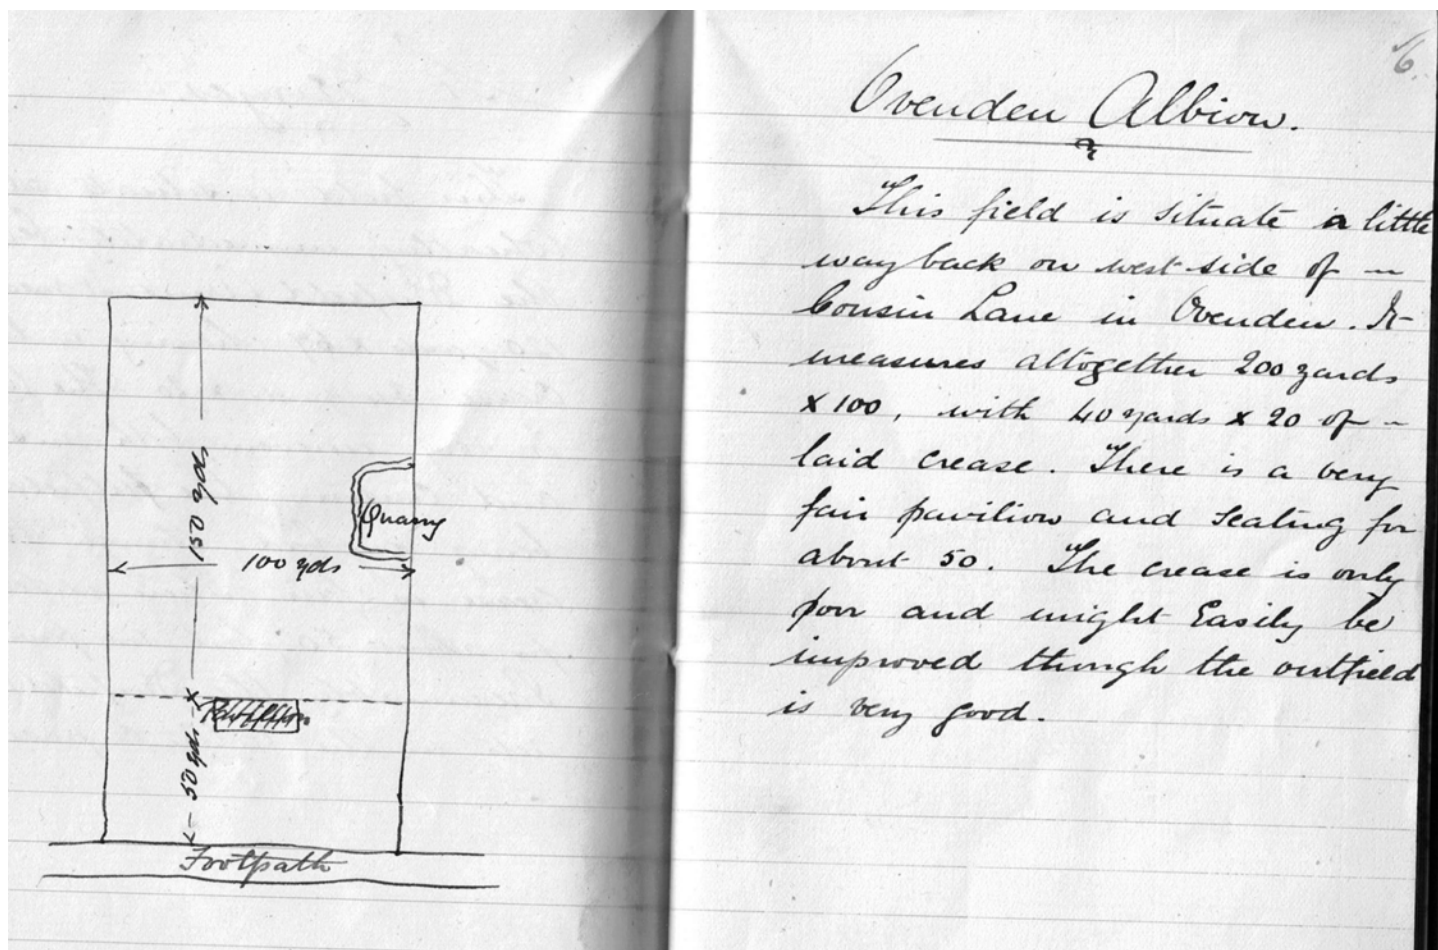 150 yds
Quarry
100 yds
Pavilion
50 yds
Footpath
6.
Ovenden Albion.
This field is situate a little
way back on west side of ~
Cousin Lane in Ovenden. It
measures altogether 200 yards
x 100, with 40 yards x 20 of ~
laid crease. There is a very
fair pavilion and seating for
about 50. The crease is only
poor and might Easily be
improved though the outfield
is very good.